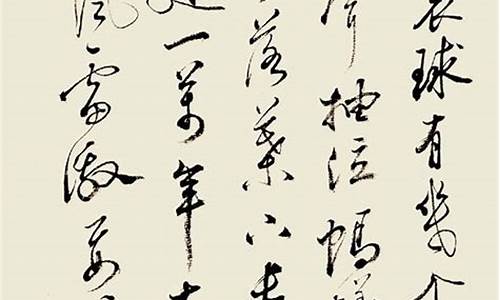 寰球有幾个
抽泣螞蟻
落葉下長
迫一萬年太
風雷激要